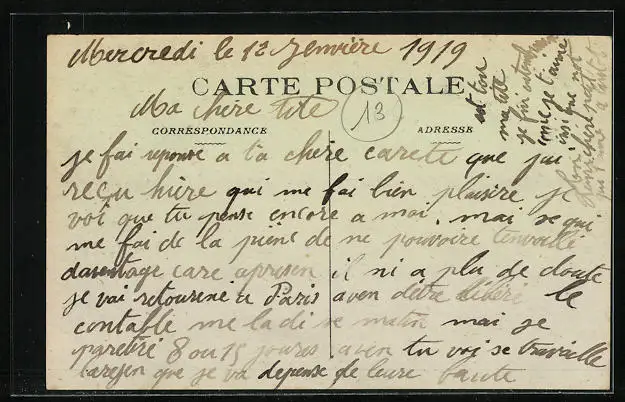 Mercredi le 12 Jenvière 1919
CARTE POSTALE
Ma chère tite
13
CORRESPONDANCE
ADRESSE
je fai reponse a ta chère carete que jai
reçu hière qui me fai bien plaisire je
voi que tu pense encore a moi. mai se qui
me fai de la piene de ne pouvoire tenvoilé
daventage care aprisen il ni a plu de doute
je vai retourenere Paris aven detre libéré le
contable me la di se matin mai je
paretiré 8 ou 15 joures aven tu voi se travaille
carejen que je va depense de leure boute
est ton
ma tite
je fini
je t'aime